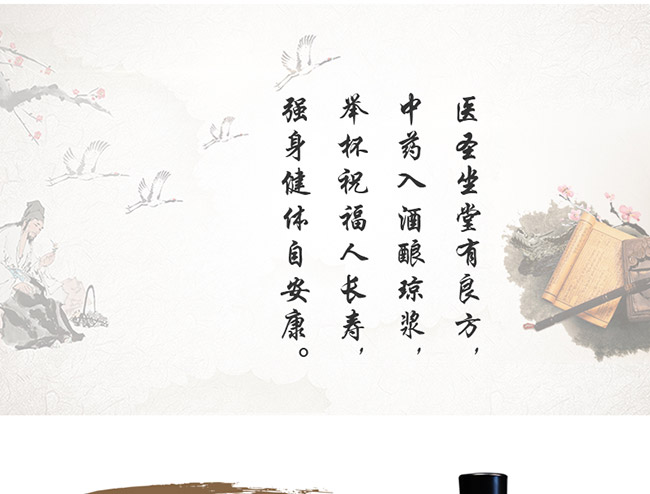 医圣坐堂有良方，
中药入酒酿琼浆，
举杯祝福人长寿，
强身健体自安康。